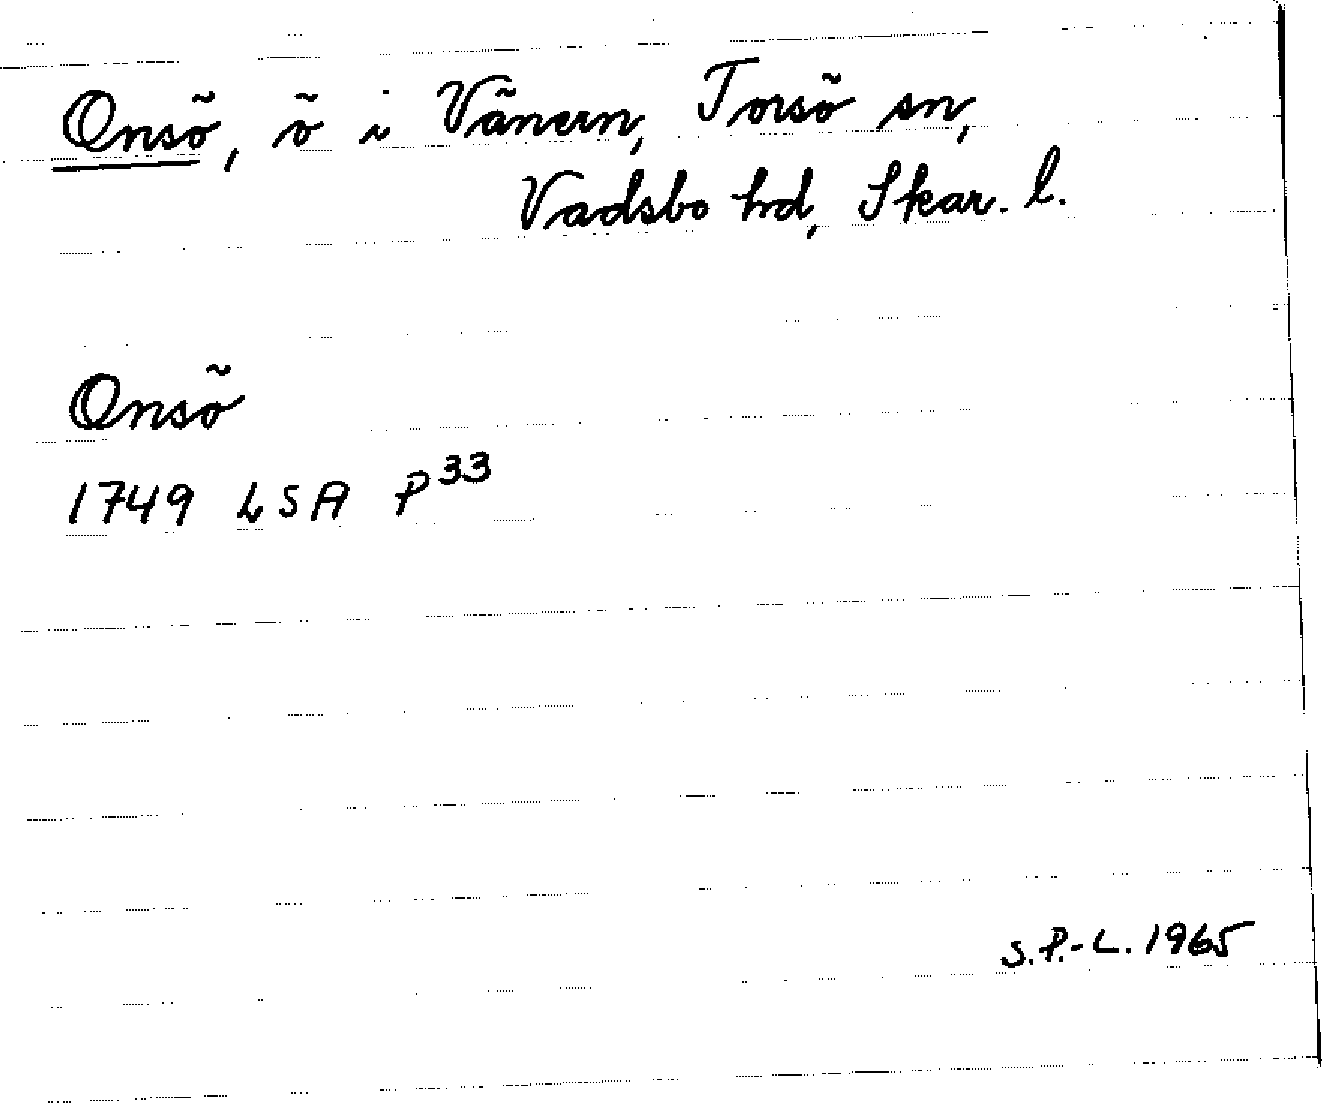 Onsö, ö i Vänern, Torsö sn,
Vadsbo hd, Skar. l.
Onsö
1749 LSA P33
S.P.-L. 1965